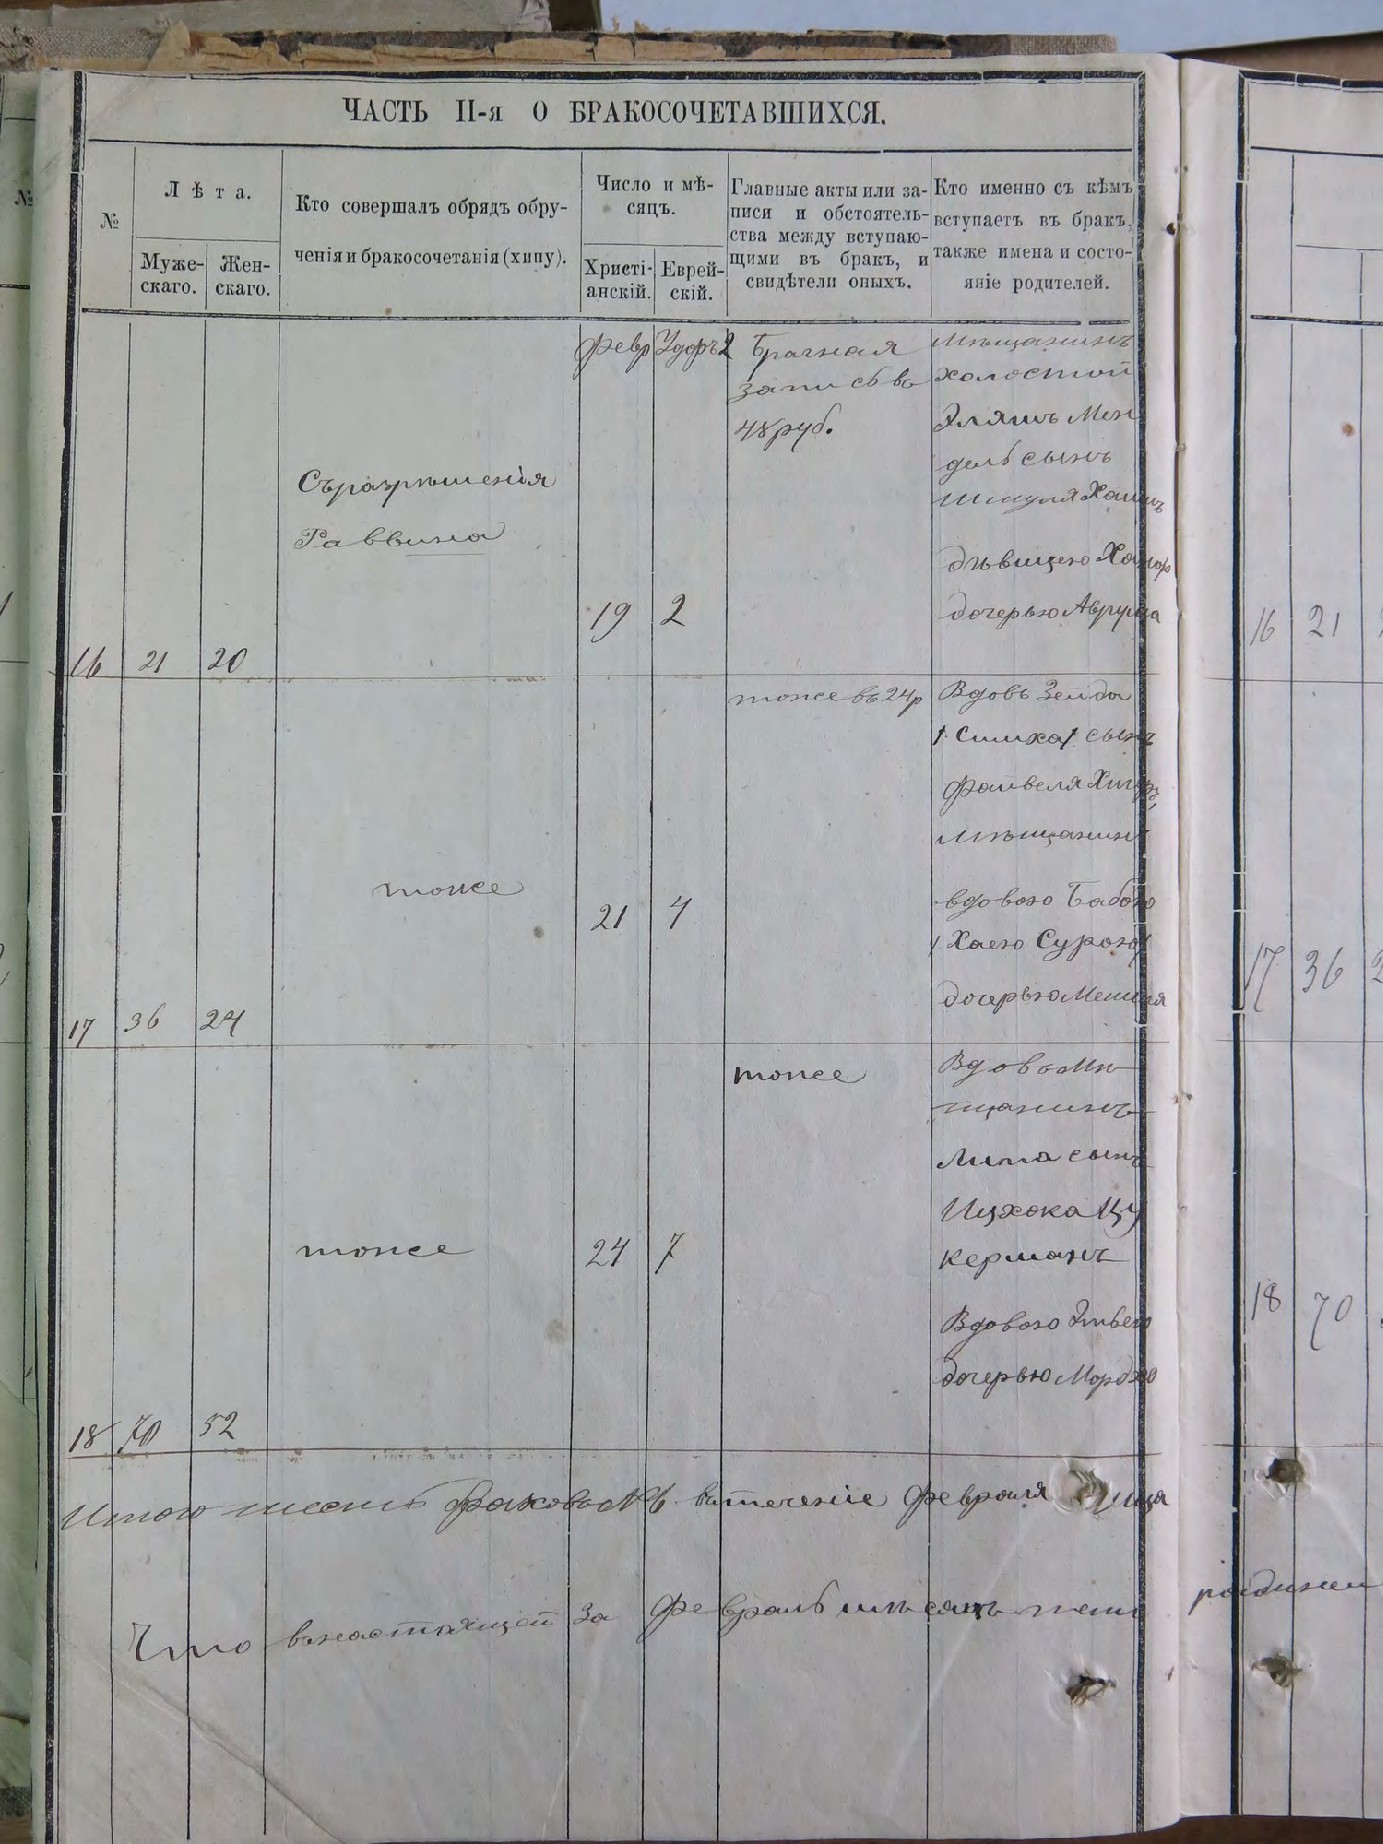 ЧАСТЬ II-я О БРАКОСОЧЕТАВШИХСЯ.
№
Лѣта.
Муже-
скаго.
Жен-
скаго.
Кто совершалъ обрядъ обру-
ченія и бракосочетанія (хипу).
Число и мѣ-
сяцъ.
Христі-
анскій.
Еврей-
скій.
Главные акты или за-
писи и обстоятель-
ства между вступаю-
щими въ бракъ, и
свидѣтели оныхъ.
Кто именно съ кѣмъ
вступаетъ въ бракъ,
также имена и состо-
яніе родителей.
16
21
20
Съразрѣшенія
Раввина
Февр
19
2
Брачная
запись въ
48 руб.
Мѣщанинъ
холостой
Эляшъ Мен
дель сынъ
дѣвицею
дочерью Аврума
17
36
24
тоже
21
4
тоже въ 24 р
Вдовъ Зейда
/ Симха / сынъ
Файвеля
Мѣщанинъ
вдовою Бабою
/ Хаею Сурою /
дочерью
18
70
52
тоже
24
7
тоже
Вдовъ Мѣ
щанинъ
Липа сынъ
Ицхока Цу
керманъ
Вдовою Этьею
дочерью Мордхо
Итого шесть браковъ № 6 втеченіе Февраля
Что внастоящей За Февраль мѣсяцъ
16 21
17 36 2
18 70